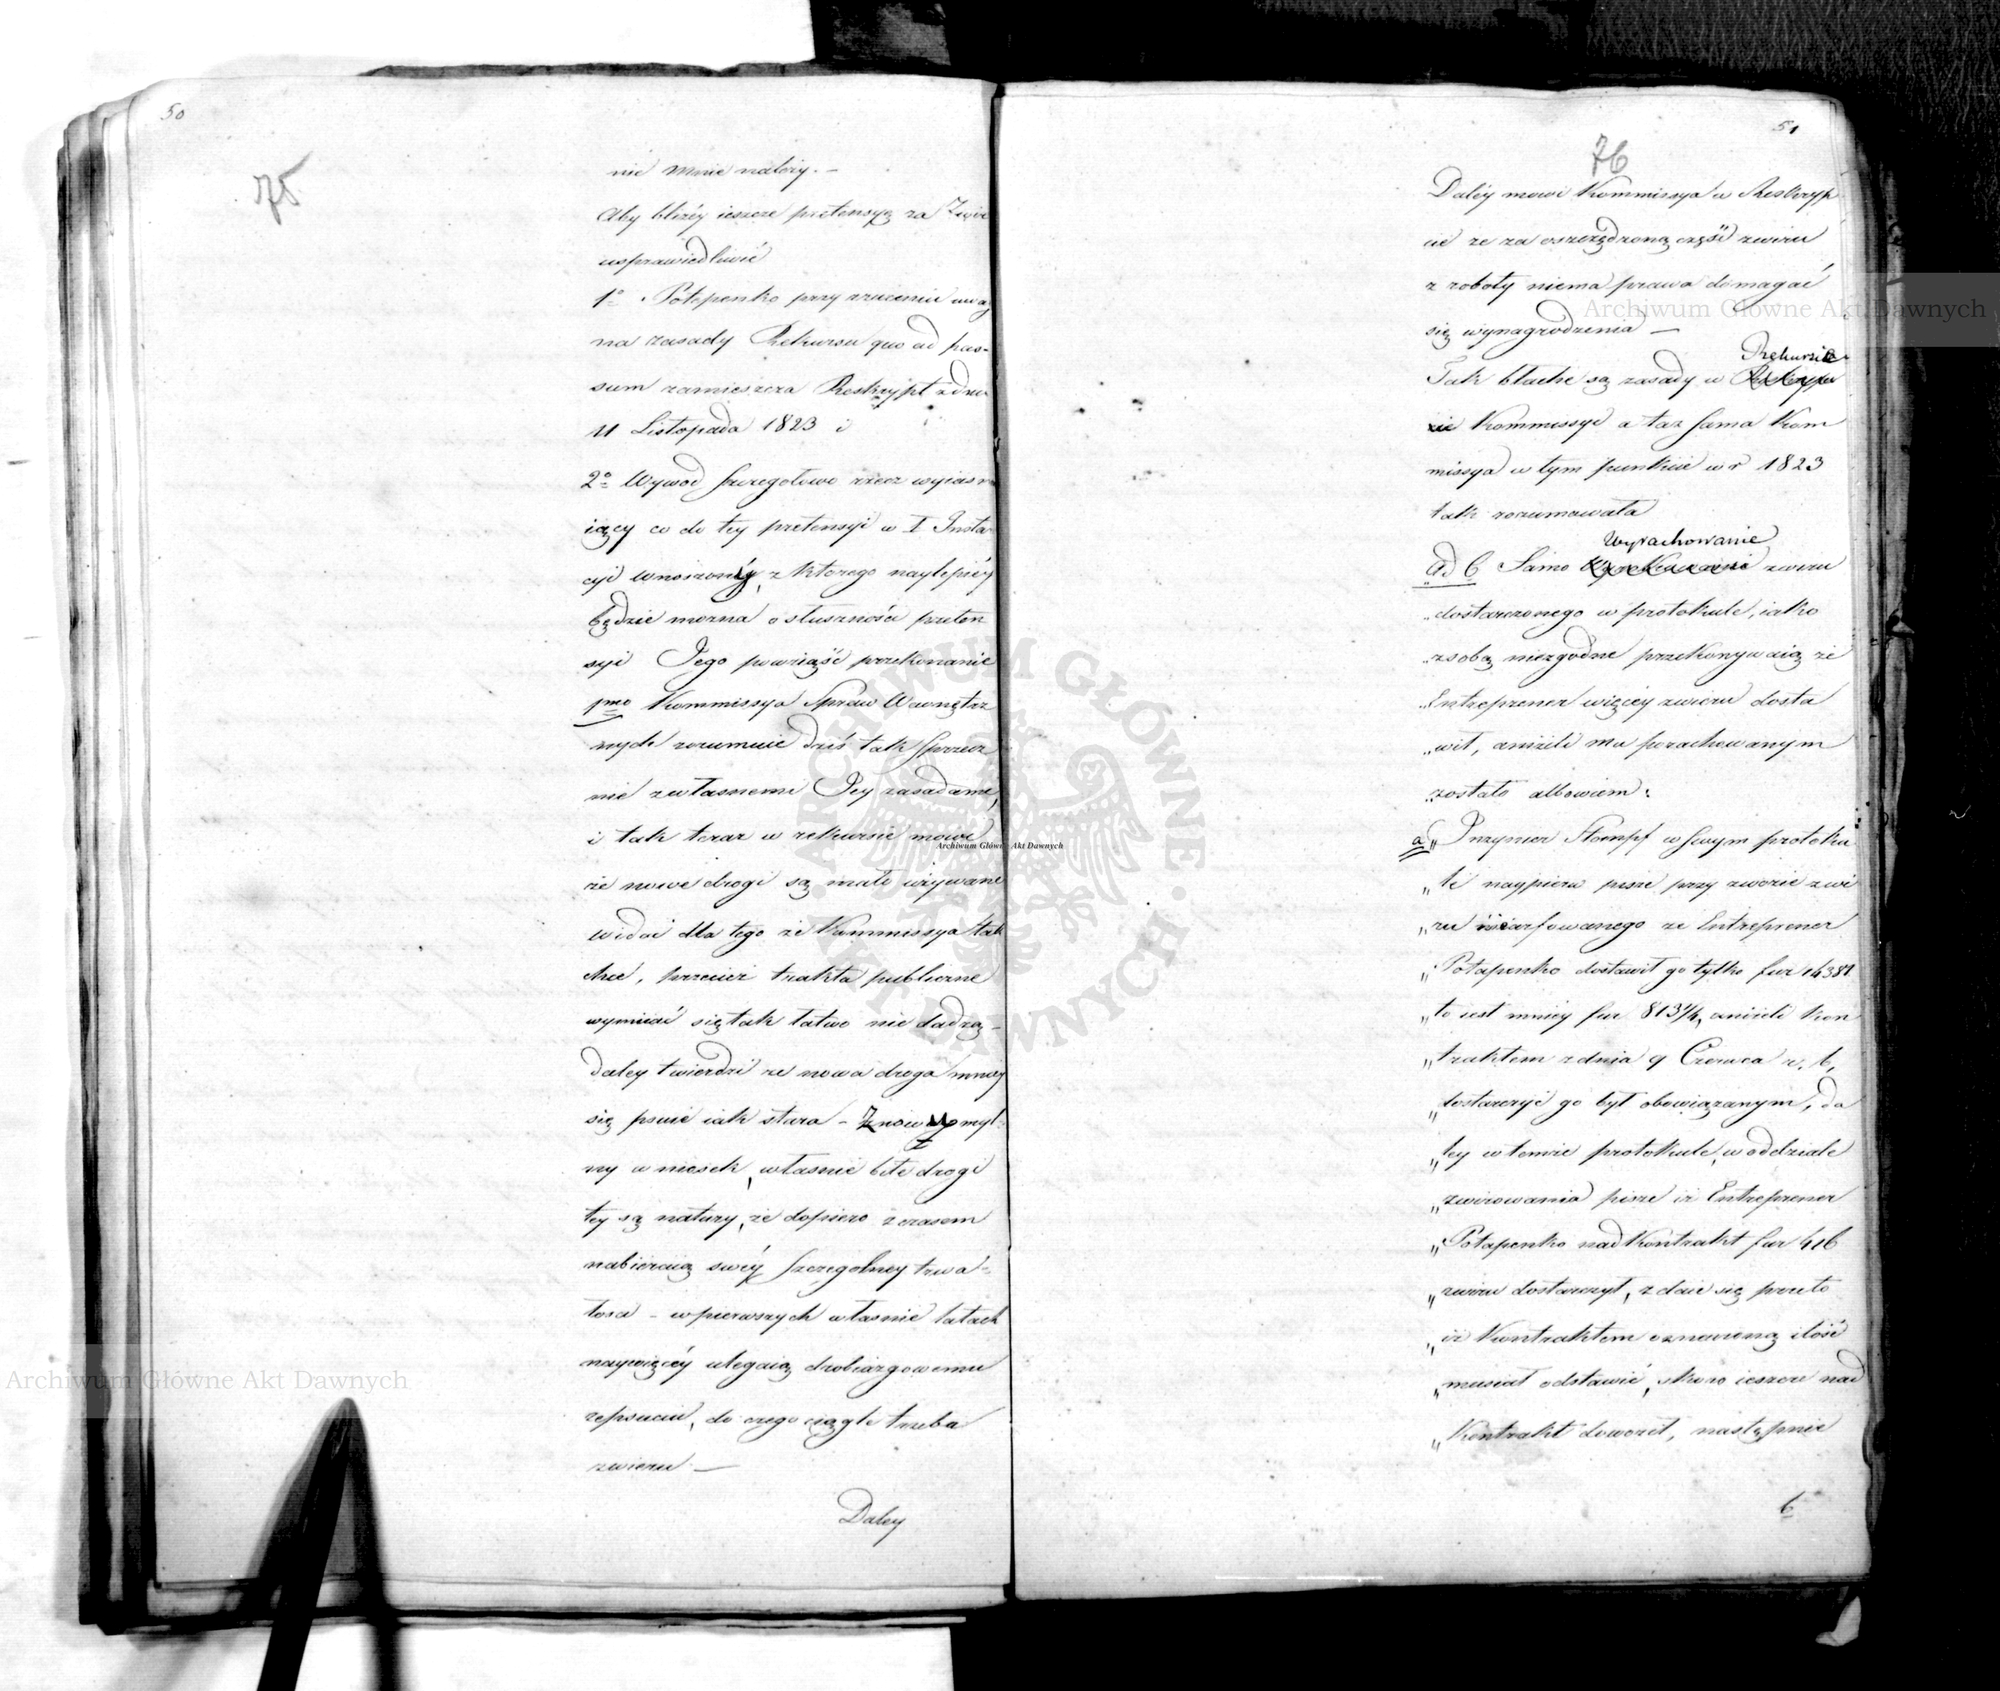 50
75
nie mnie należy. –
Aby bliżéy ieszcze pretensyą za Żwir
usprawiedliwić
1o Potapenko przy rzuceniu uwag
na zasady Rekursu quo ad pas-
sum zamieszcza Reskrypt z dnia
11 Listopada 1823 i
2o Wywod szczegołowo rzecz wyiasn
iaiący co do tey pretensyi w I Instan
cyi wnoszony, z ktorego naylepiéy
będzie można o słuszności preten
syi Jego powziąść przekonanie
1mo Kommissya Spraw Wewnętrz
nych rozumuie dziś tak sprzecz
nie z własnemi Jey zasadami,
i tak teraz w rekursie mowi
że nowe drogi są mało używane
widać dla tego że Kommissya tak
chce, przecież trakta publiczne
wymiiać się tak łatwo nie dadzą –
daley twierdzi że nowa droga mniey
się psuie iak stara – Znow myl-
ny wniosek, własnie bite drogi
tey są natury, że dopiero z czasem
nabieraią swéy szczegolney trwa-
łosci – w pierwszych własnie latach
naywięcéy ulegaią drobiazgowemu
zepsuciu, do czego ciągle trzeba
zwieru –
Daley
51
76
Daléy mowi Kommissya w Reskryp
cie ze za oszczędzoną część zwiru
z roboty niema prawa domagać
się wynagrodzenia –
Rekursie
Tak błache są zasady w
Kommissyi a taz sama Kom
missya w tym punkcie w r 1823
tak rozumowała
Wyrachowanie
ad 6 Samo zwiru
„dostarczonego w protokule, iako
„z sobą niezgodne przekonywaią że
„Entreprener więcéy zwieru dosta
„wił, aniżeli mu porachowanym
„zostało albowiem:
a „Inzynier Stompf w swym protoku
„le naypierw pisze przy zwozie zwi
„ru szarfowanego ze Entreprener
„Potapenko dostawił go tylko fur 14381
„to iest mniéy fur 813 1/4, aniżeli kon
„traktem z dnia 9 Czerwca r. b.
„dostarczyć go był obowiązanym, da
„ley w temże protokule, w oddziale
„zwirowania pisze iż Entreprener
„Potapenko nad Kontrakt fur 416
„zwiru dostarczył, zdaie się przeto
„iż Kontraktem oznaczoną ilość
„musiał odstawić, skoro ieszcze nad
„Kontrakt dowozil, następnie
b
Archiwum Główne Akt Dawnych
Archiwum Główne Akt Dawnych
Archiwum Główne Akt Dawnych
ARCHIWUM GŁÓWNE AKT DAWNYCH